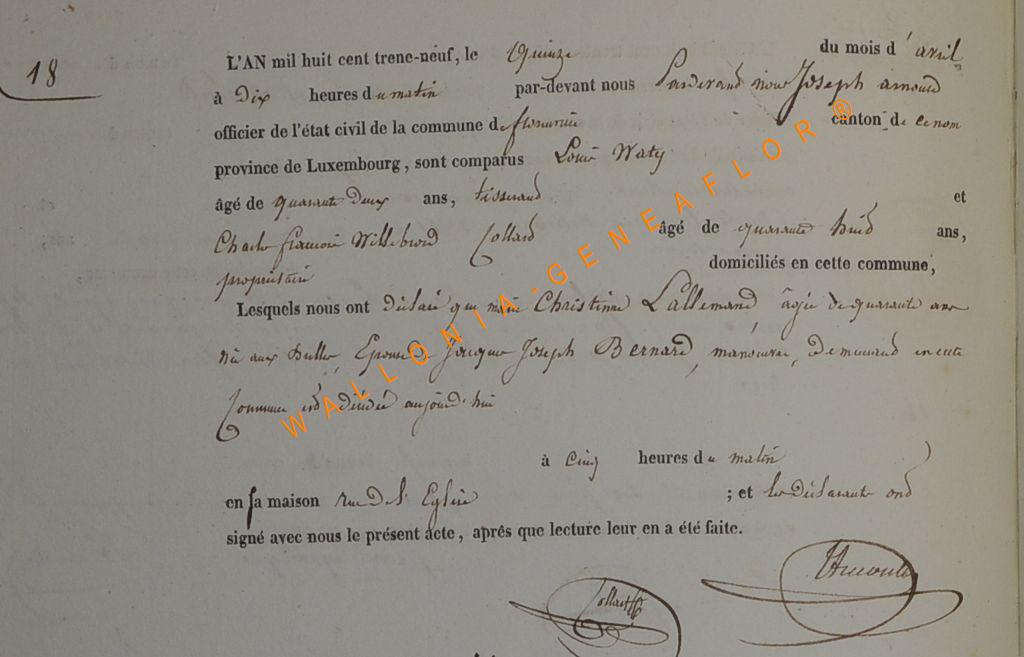 18
L'AN mil huit cent trene-neuf, le Quinze du mois d'avril
à Dix heures du matin par-devant nous Joseph arnould
officier de l'état civil de la commune de florenville canton de ce nom
province de Luxembourg, sont comparus Louis Waty
âgé de quarante deux ans, tisserand et
Charles françois Willebrord Collard âgé de quarante huit ans,
propriétaire domiciliés en cette commune,
Lesquels nous ont déclaré que marie Christinne Lallemand, âgée de quarante ans
née aux bulles, Epouse de Jacques Joseph Bernard, manouvrier, Demeurant en cette
Commune est décédée aujourd'hui
à cinq heures du matin
en sa maison rue de l'Eglise ; et les Déclarants ont
signé avec nous le présent acte, après que lecture leur en a été faite.
Collard JArnould
WALLONIA-GENEAFLOR®